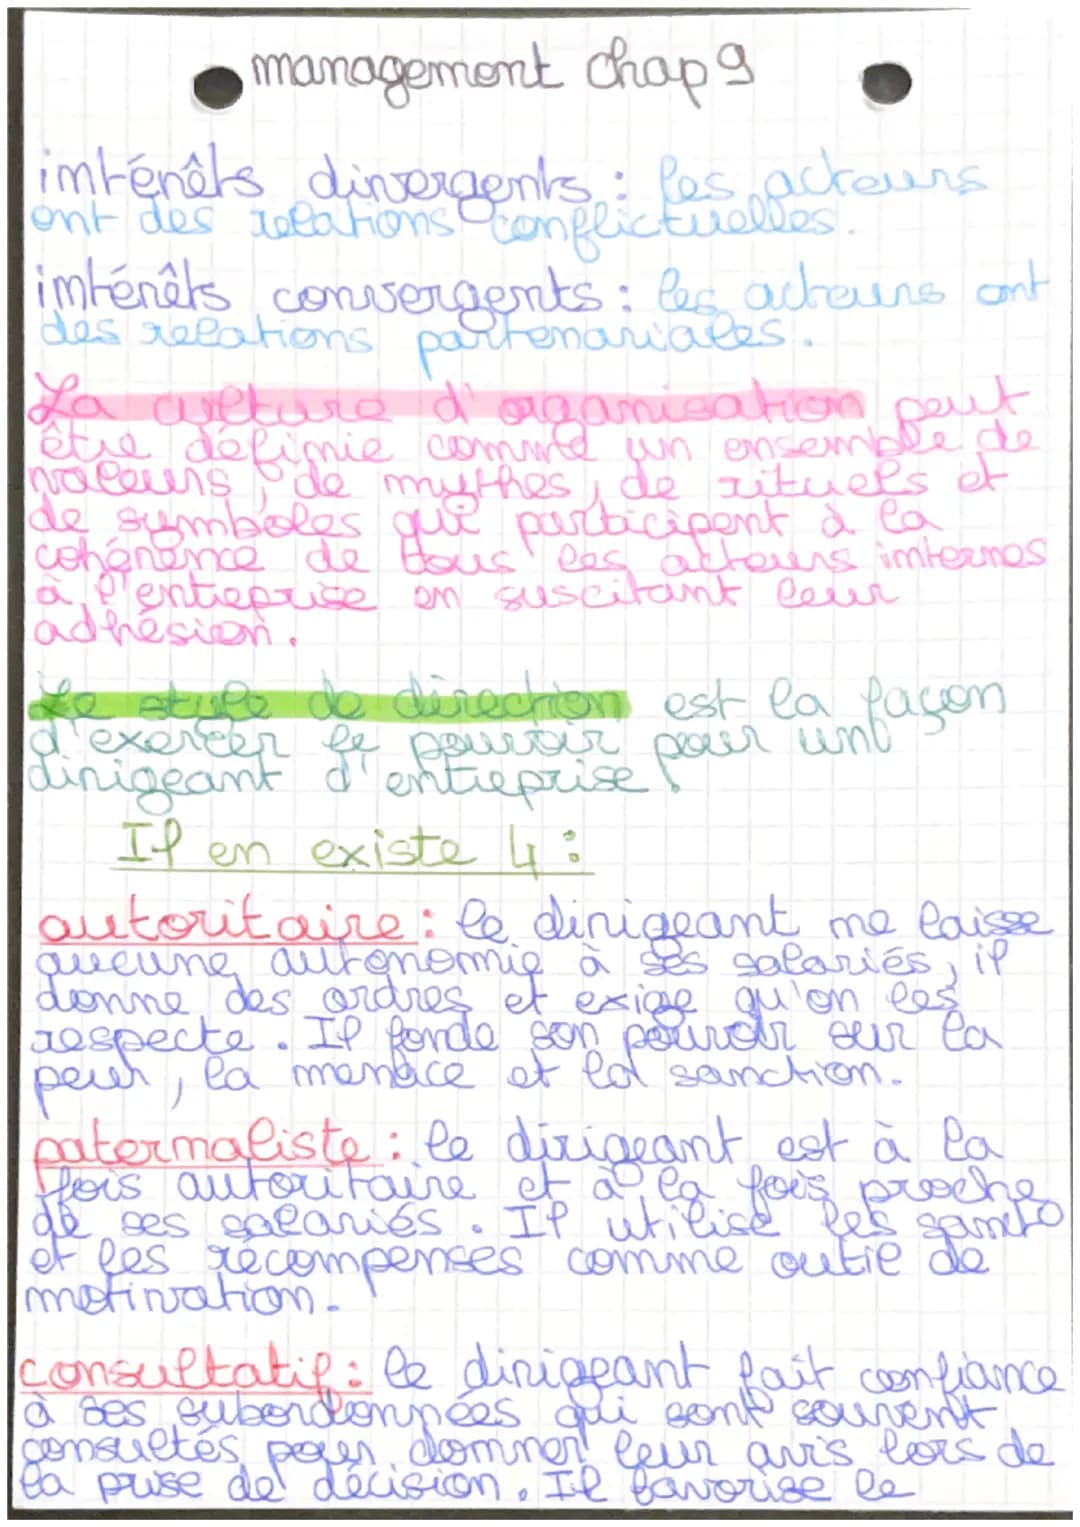 management chap 9
intérêts divergents : les acteurs
ont des relations conflictuelles.
intérêts convergents : les acteurs ont
des relations partenariales.
La culture d'organisation peut
être définie comme un ensemble de
valeurs, de mythes, de rituels et
de symboles qui participent à la
cohérence de tous les acteurs internes
à l'entreprise en suscitant leur
adhésion.
Le style de direction est la façon
d'exercer le pouvoir pour un
dirigeant d'entreprise.
Il en existe 4 :
autoritaire : le dirigeant ne laisse
aucune autonomie à ses salariés, il
donne des ordres et exige qu'on les
respecte. Il fonde son pouvoir sur la
peur, la menace et la sanction.
paternaliste : le dirigeant est à la
fois autoritaire et à la fois proche
de ses salariés. Il utilise les
et les récompenses comme outil de
motivation.
consultatif : le dirigeant fait confiance
à ses subordonnées qui sont souvent
consultés pour donner leur avis lors de
la prise de décision. Il favorise le